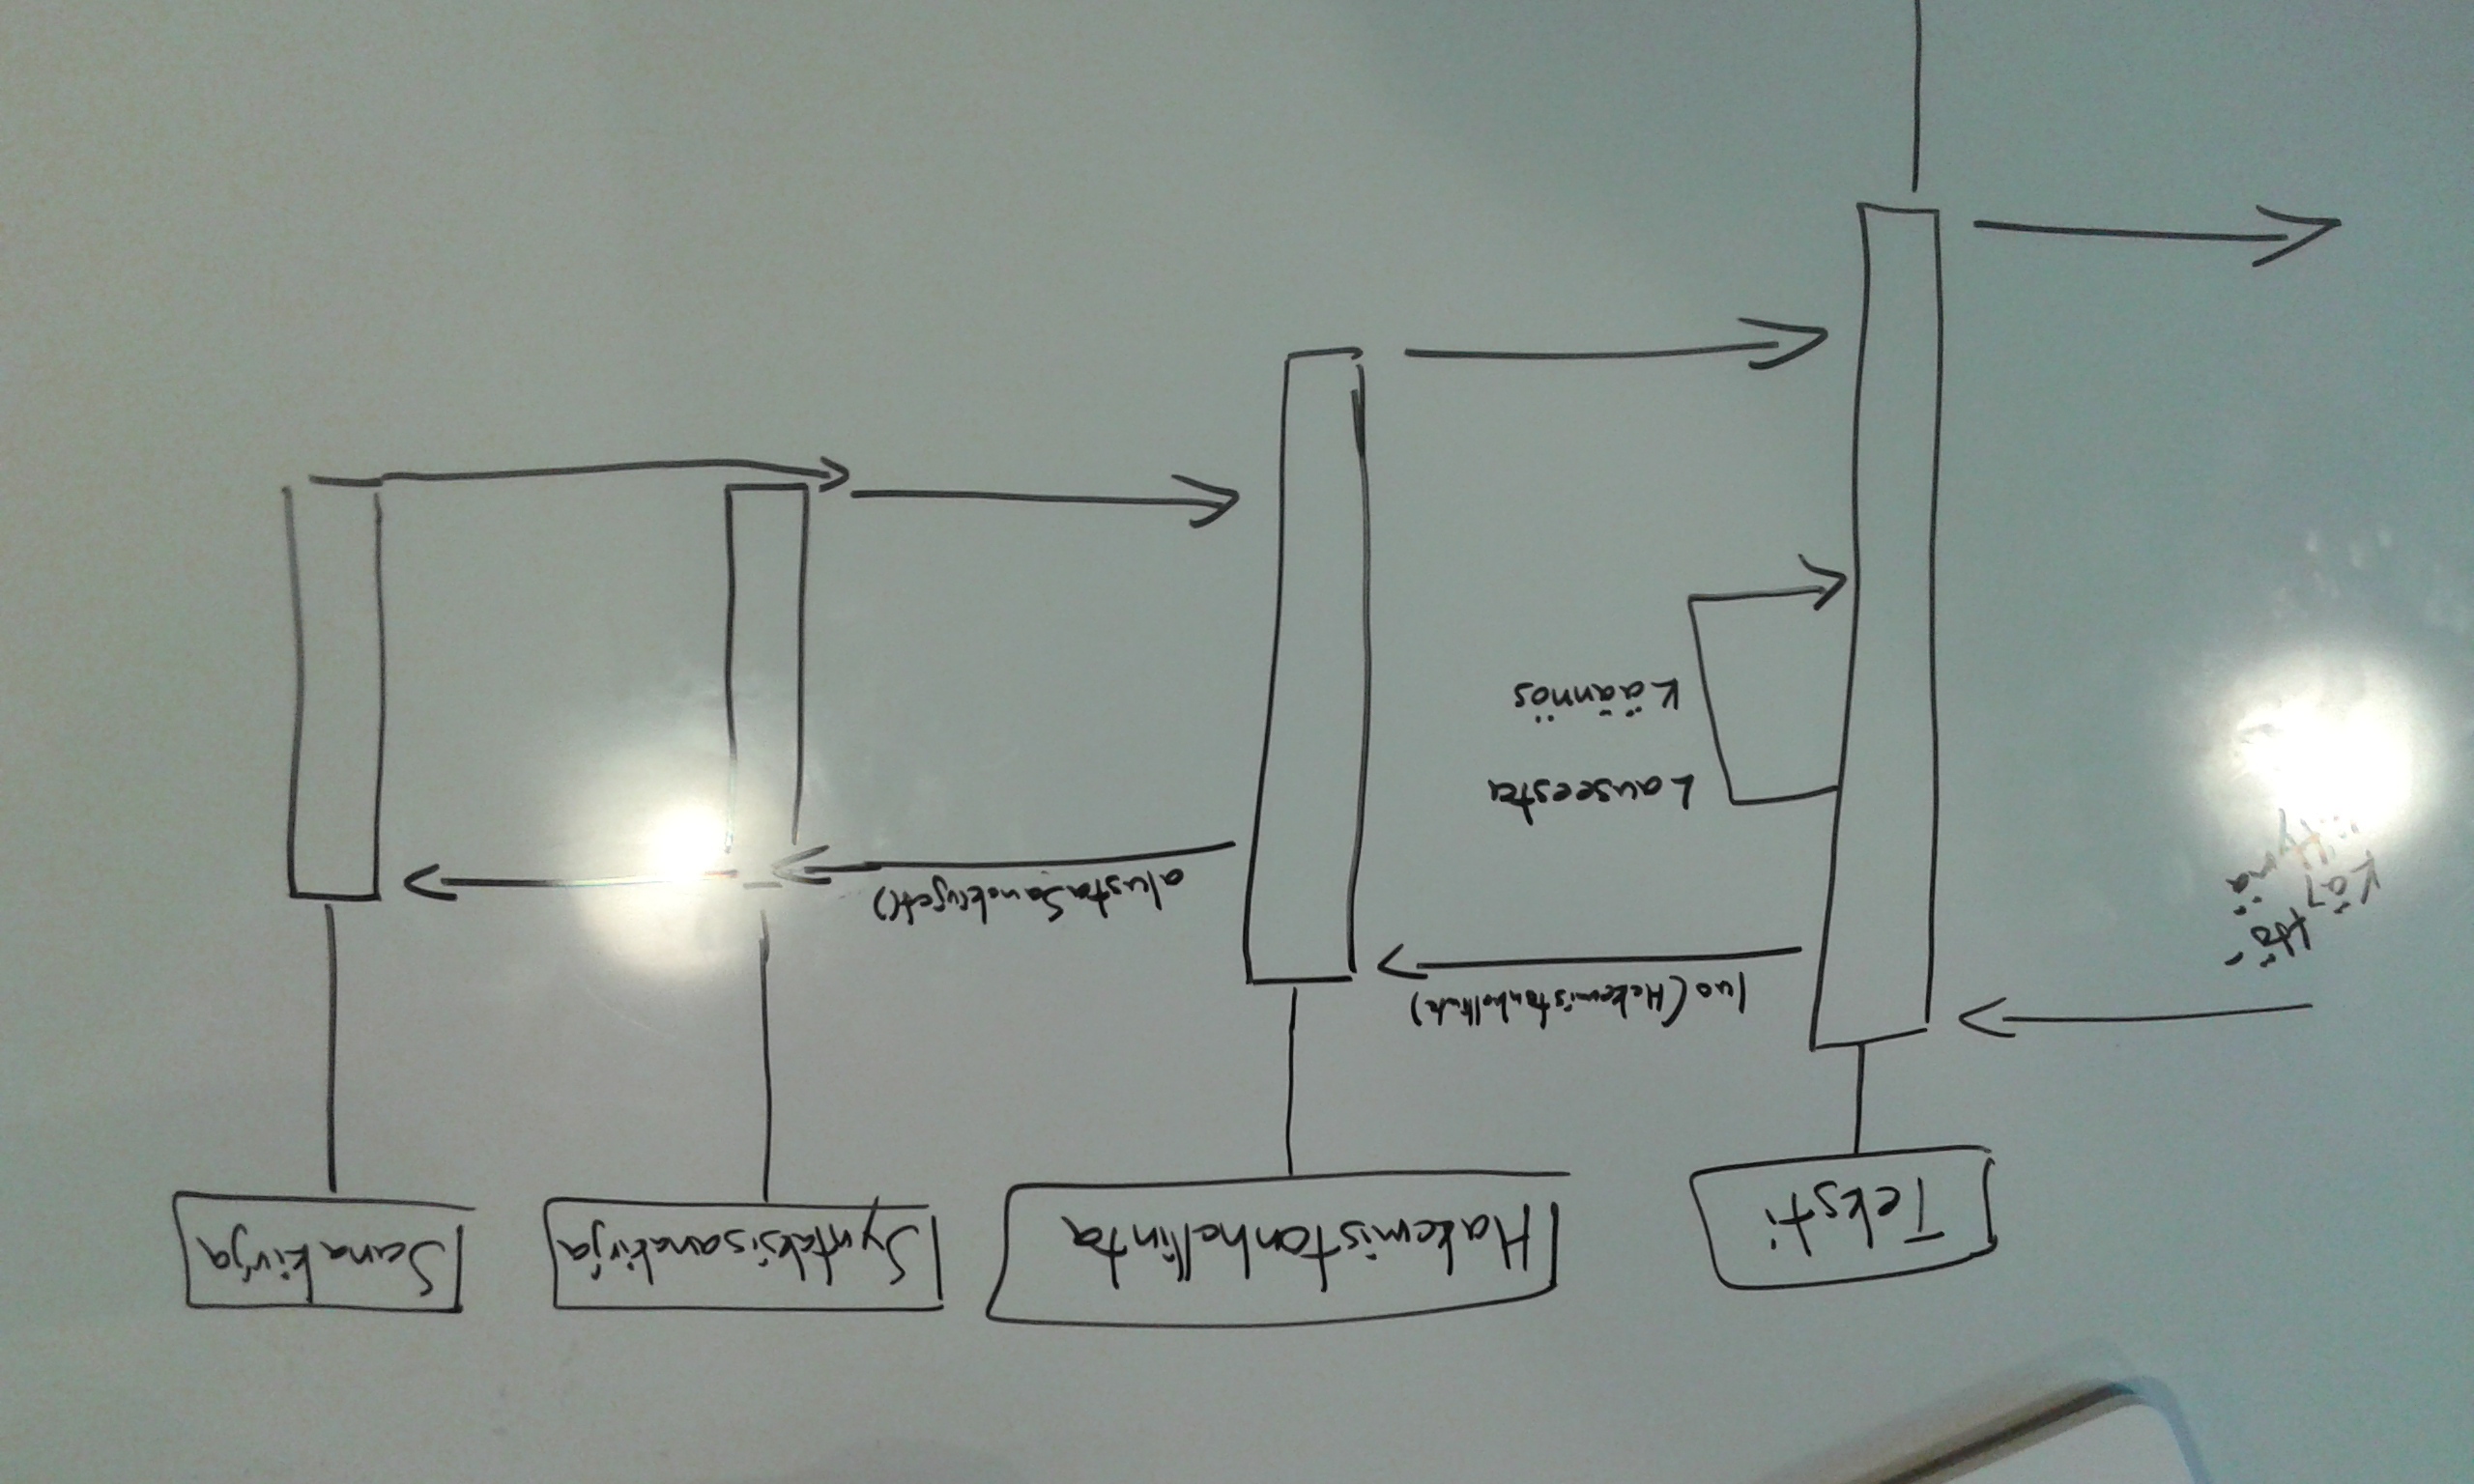 Teksti
Hakemistonhallinta
Syntaksisanakirja
Sanakirja
luo(Hakemistonhallinta)
alustaSanakirjat()
Lauseesta
Käännös